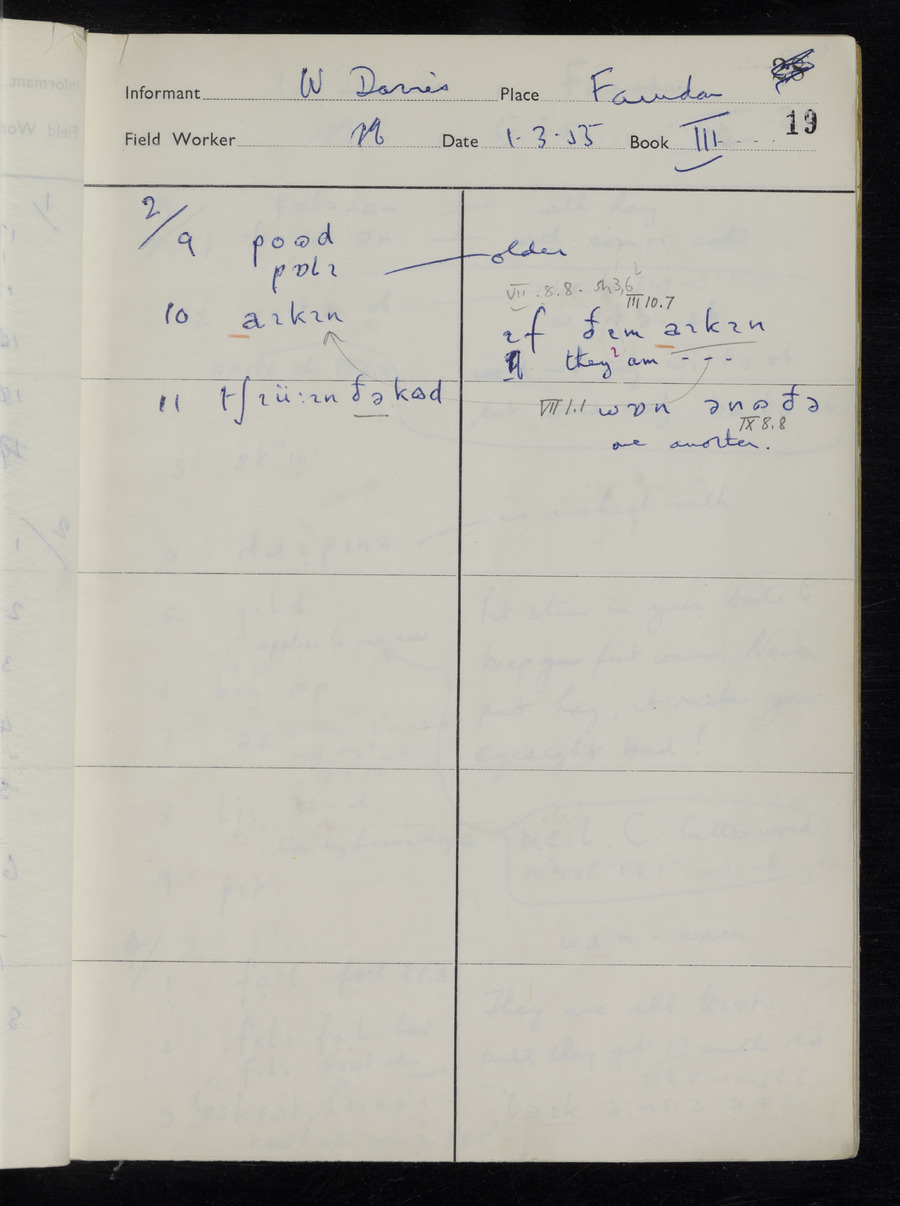 Informant W Davies Place Farndon
Field Worker Date 1·3·55 Book III
19
2/9 pʊʊd
pɒlɪ — older
VII.8.8. sh3,6
III 10.7
10 aɪkɪn ɪf ðɪm aɪkɪn
If they am - - -
11 tʃɪü:ɪn ðə kʊd VII 1.1 wɒn ənʊðə
IX 8.8
one another.